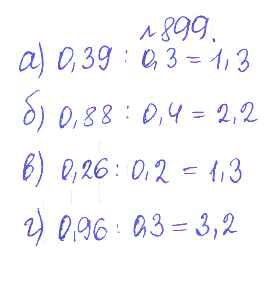 №899.
а) 0,39 : 0,3 = 1,3
б) 0,88 : 0,4 = 2,2
в) 0,26 : 0,2 = 1,3
г) 0,96 : 0,3 = 3,2